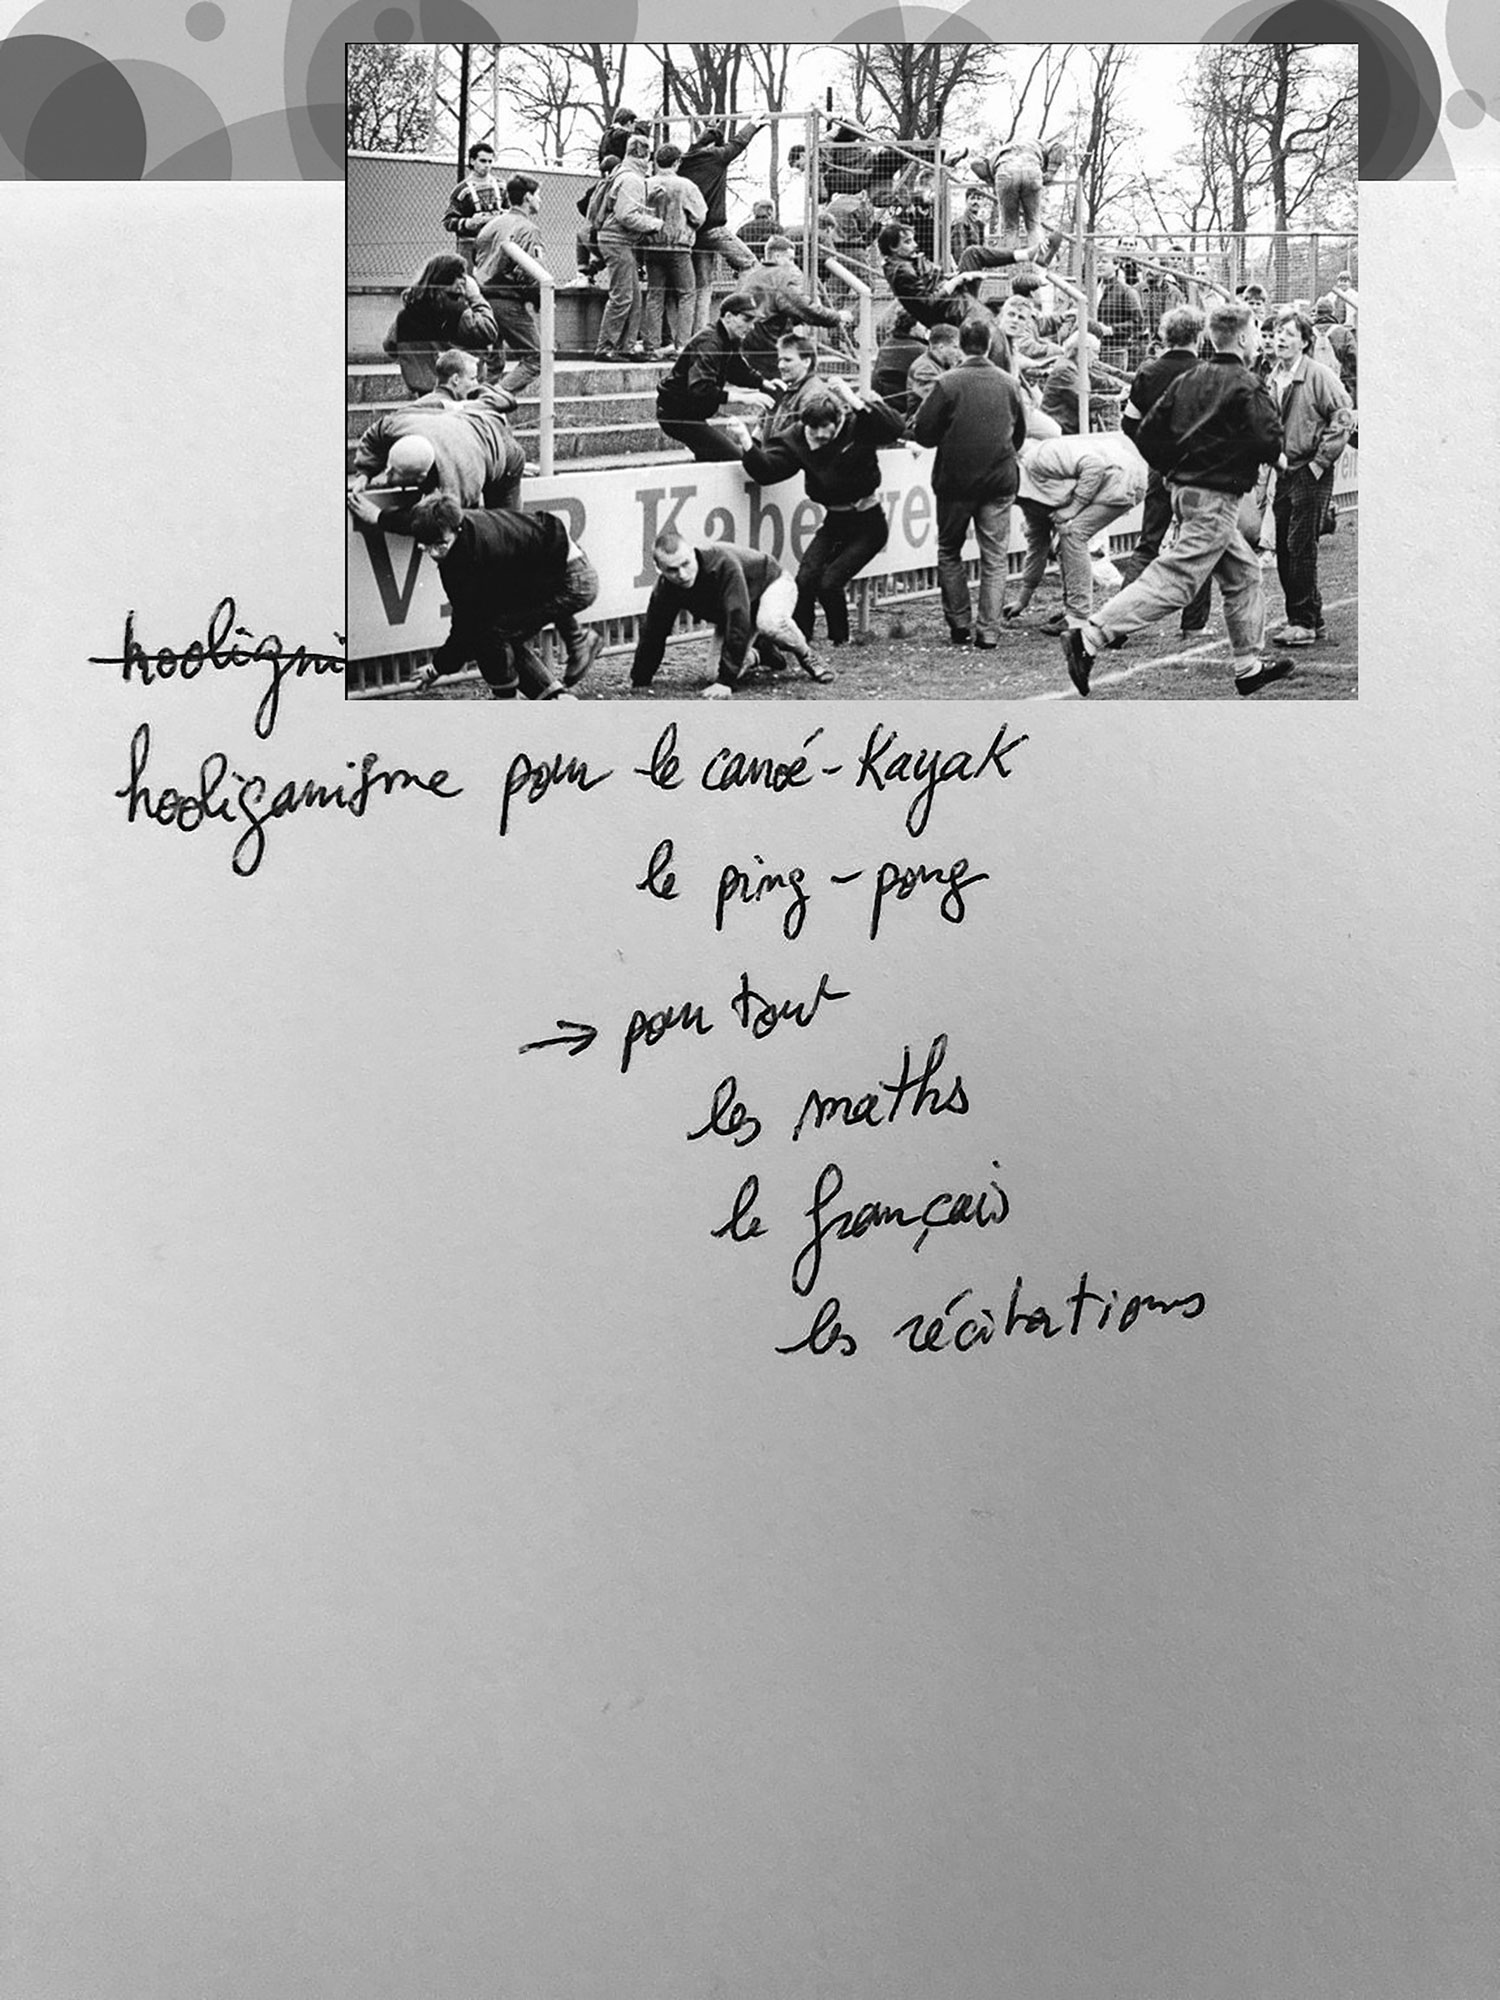 Kabe
hooligni
hooliganisme pour le canoé-Kayak
le ping-pong
→ pour tout
les maths
le français
les récitations